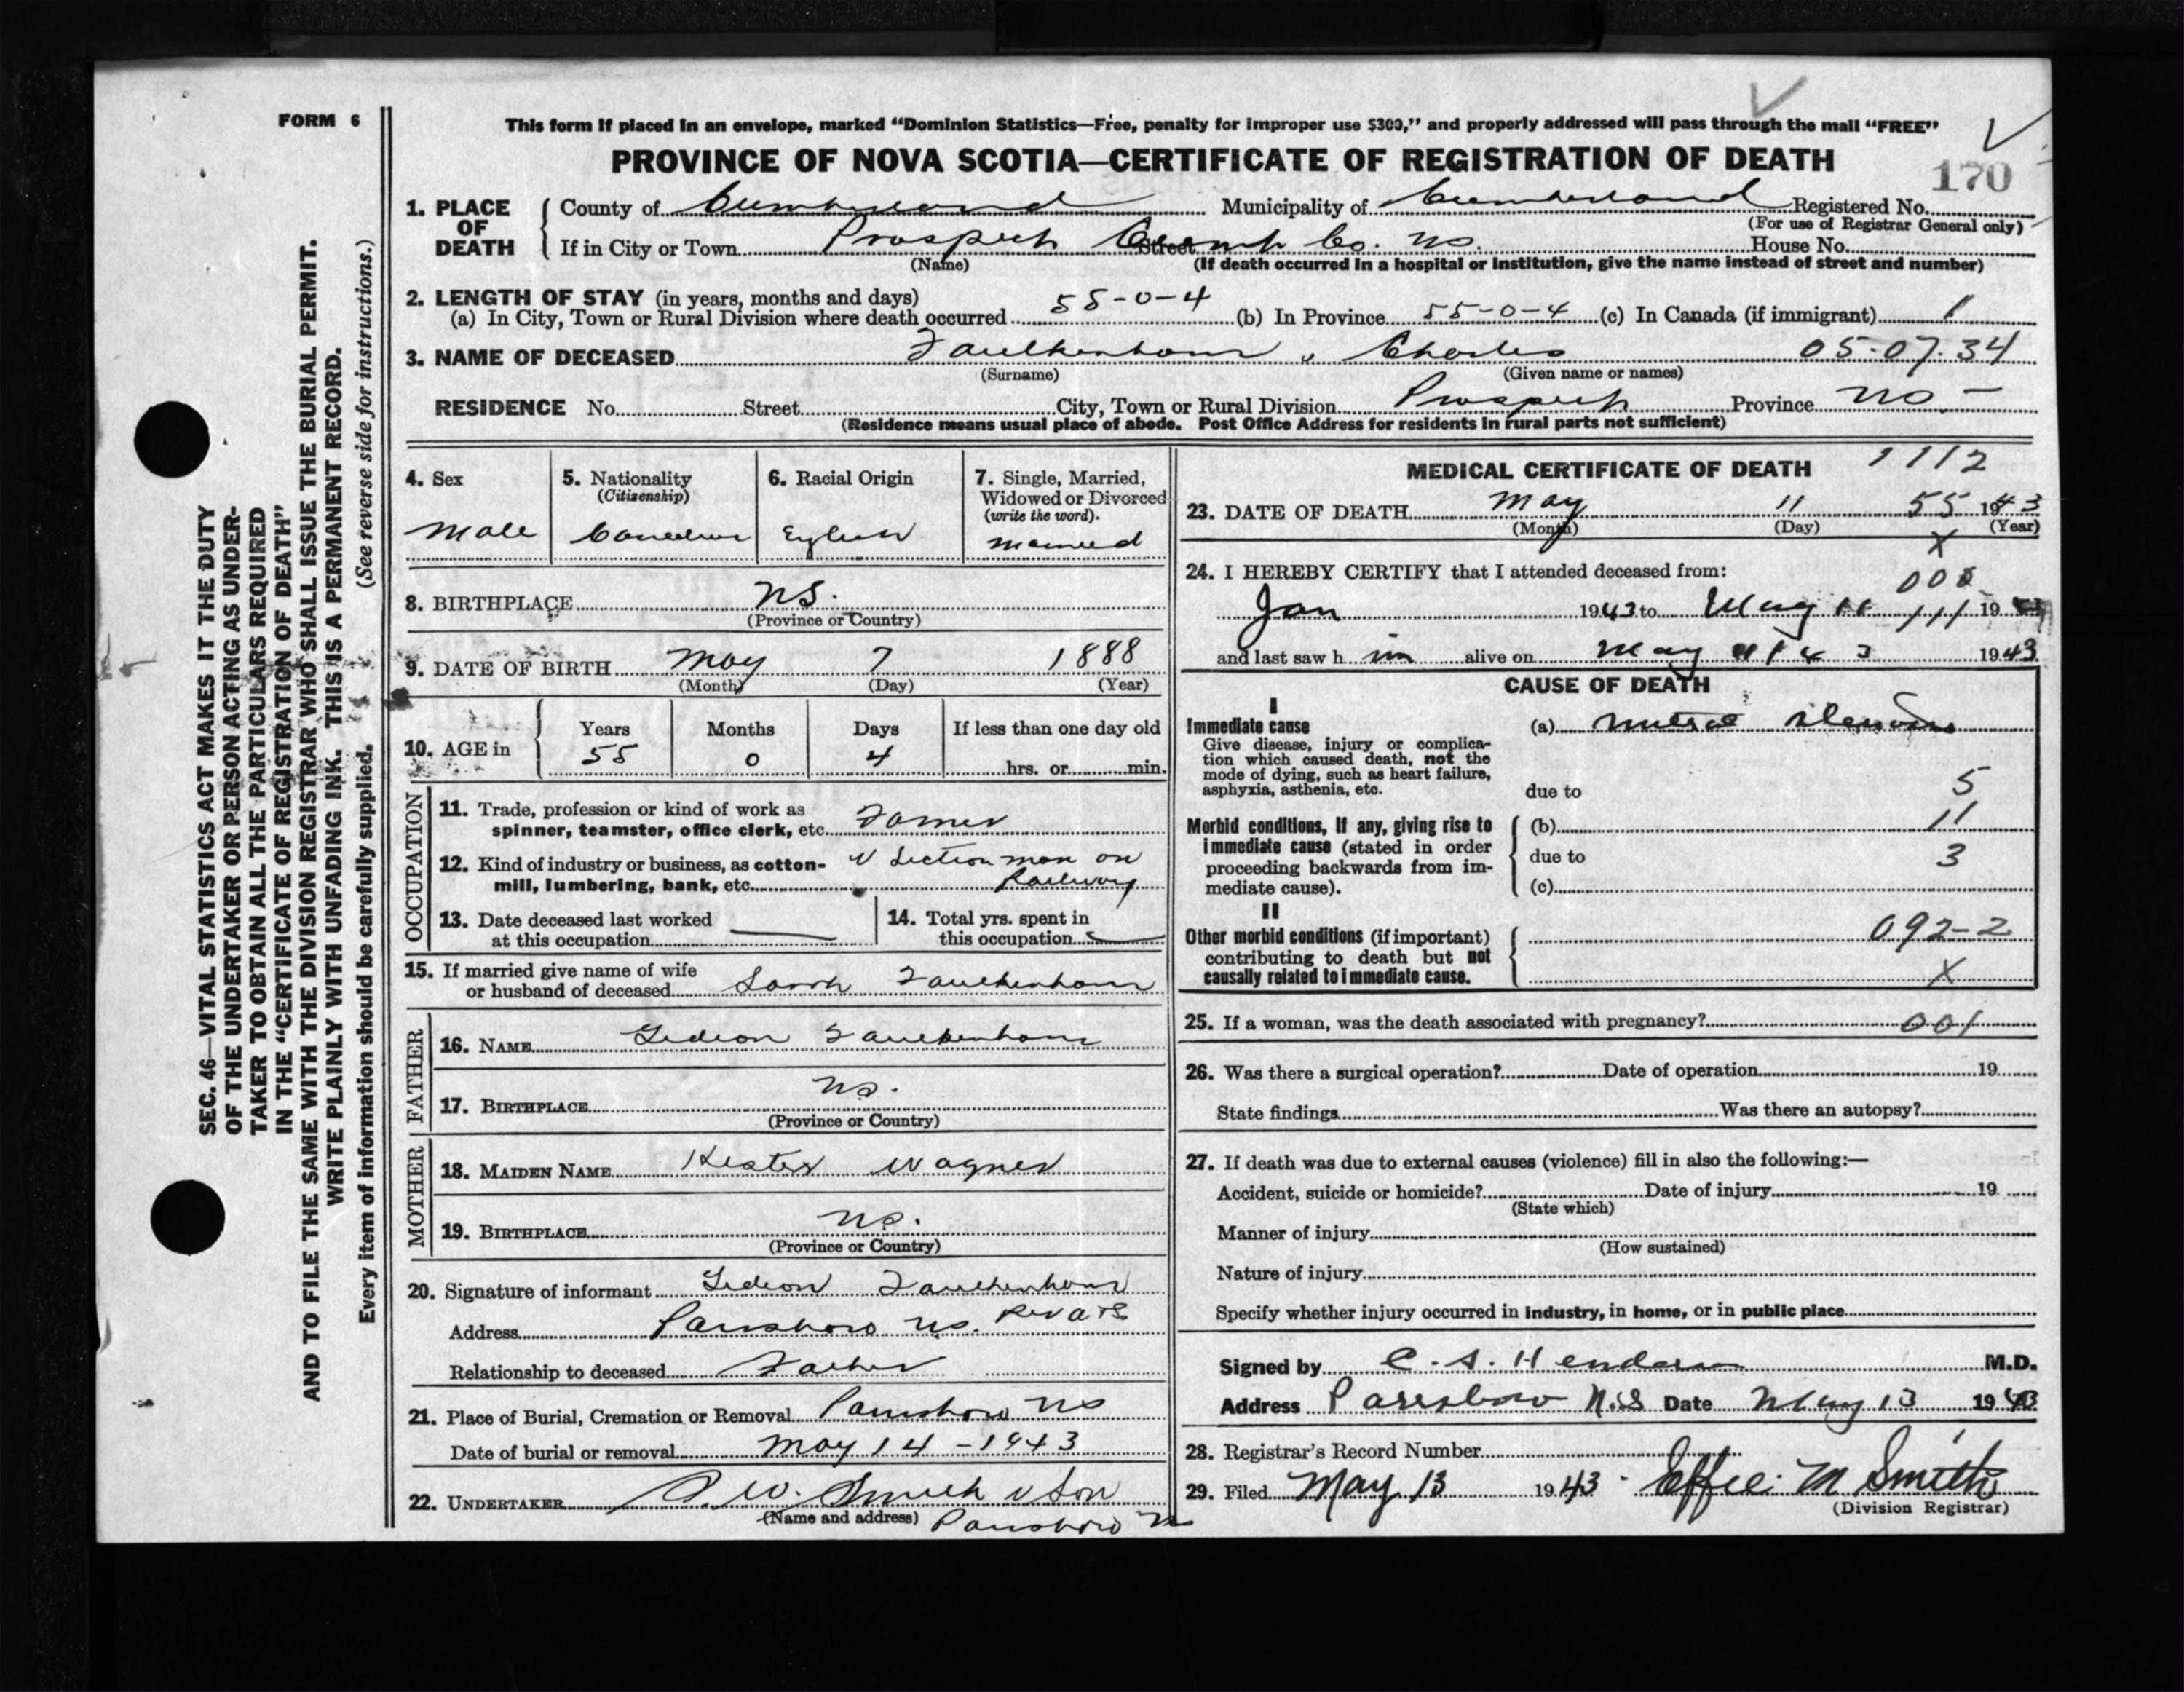 FORM 6
This form if placed in an envelope, marked "Dominion Statistics—Free, penalty for improper use $300," and properly addressed will pass through the mail "FREE"
PROVINCE OF NOVA SCOTIA—CERTIFICATE OF REGISTRATION OF DEATH
170
1. PLACE OF DEATH
County of Cumberland Municipality of Cumberland Registered No.
(For use of Registrar General only)
If in City or Town Prospect Cumb Co. NS. Street House No.
(Name) (If death occurred in a hospital or institution, give the name instead of street and number)
2. LENGTH OF STAY (in years, months and days)
(a) In City, Town or Rural Division where death occurred 55-0-4 (b) In Province 55-0-4 (c) In Canada (if immigrant) 1
3. NAME OF DECEASED Faulkenham, Charles 05.07.34
(Surname) (Given name or names)
RESIDENCE No. Street City, Town or Rural Division Prospect Province NS-
(Residence means usual place of abode. Post Office Address for residents in rural parts not sufficient)
4. Sex
Male
5. Nationality
(Citizenship)
Canadian
6. Racial Origin
English
7. Single, Married,
Widowed or Divorced
(write the word).
Married
8. BIRTHPLACE NS.
(Province or Country)
9. DATE OF BIRTH May 7 1888
(Month) (Day) (Year)
10. AGE in
Years Months Days If less than one day old
55 0 4 hrs. or min.
OCCUPATION
11. Trade, profession or kind of work as
spinner, teamster, office clerk, etc. Farmer
12. Kind of industry or business, as cotton-
mill, lumbering, bank, etc. v Section man on
Railway
13. Date deceased last worked
at this occupation
14. Total yrs. spent in
this occupation
15. If married give name of wife
or husband of deceased Sarah Faulkenham
FATHER
16. NAME Gideon Faulkenham
17. BIRTHPLACE NS.
(Province or Country)
MOTHER
18. MAIDEN NAME Hester Wagner
19. BIRTHPLACE NS.
(Province or Country)
20. Signature of informant Gideon Faulkenham
Address Parrsboro NS.
Relationship to deceased Father
21. Place of Burial, Cremation or Removal Parrsboro NS
Date of burial or removal May 14 - 1943
22. UNDERTAKER W. Smith v Son
(Name and address) Parrsboro NS
MEDICAL CERTIFICATE OF DEATH 1112
23. DATE OF DEATH May 11 55 1943
(Month) (Day) (Year)
X
24. I HEREBY CERTIFY that I attended deceased from:
Jan 1943 to May 11 111 19
and last saw h im alive on May 11 43 1943
CAUSE OF DEATH
I
Immediate cause
Give disease, injury or complica-
tion which caused death, not the
mode of dying, such as heart failure,
asphyxia, asthenia, etc.
(a) Mitral Stenosis
due to 5
Morbid conditions, if any, giving rise to
immediate cause (stated in order
proceeding backwards from im-
mediate cause).
(b) 11
due to 3
(c)
II
Other morbid conditions (if important)
contributing to death but not
causally related to immediate cause.
092-2
X
25. If a woman, was the death associated with pregnancy? 001
26. Was there a surgical operation? Date of operation 19
State findings Was there an autopsy?
27. If death was due to external causes (violence) fill in also the following:—
Accident, suicide or homicide? Date of injury 19
(State which)
Manner of injury
(How sustained)
Nature of injury
Specify whether injury occurred in industry, in home, or in public place
Signed by C. S. Henderson M.D.
Address Parrsboro N.S Date May 13 1943
28. Registrar's Record Number
29. Filed May 13 1943. Effie M Smith
(Division Registrar)
SEC. 46—VITAL STATISTICS ACT MAKES IT THE DUTY
OF THE UNDERTAKER OR PERSON ACTING AS UNDER-
TAKER TO OBTAIN ALL THE PARTICULARS REQUIRED
IN THE "CERTIFICATE OF REGISTRATION OF DEATH"
AND TO FILE THE SAME WITH THE DIVISION REGISTRAR WHO SHALL ISSUE THE BURIAL PERMIT.
WRITE PLAINLY WITH UNFADING INK. THIS IS A PERMANENT RECORD.
Every item of information should be carefully supplied. (See reverse side for instructions.)